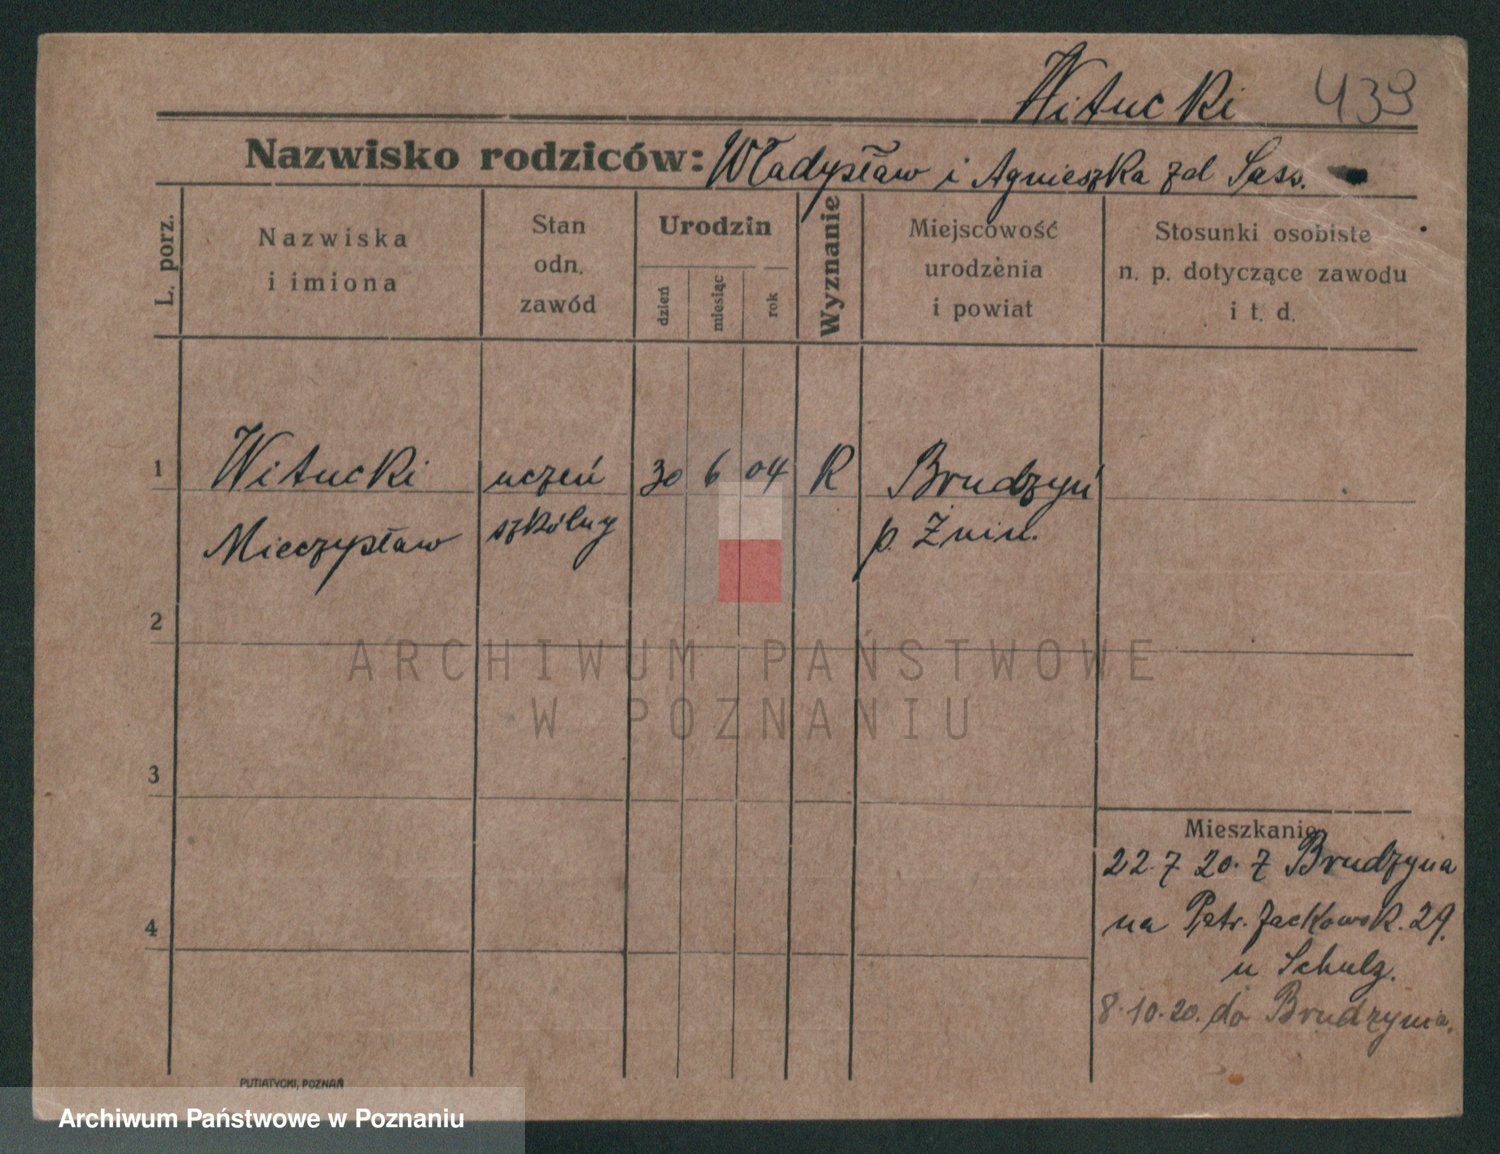 Witucki 439
Nazwisko rodziców: Władysław i Agnieszka zd Sass.
L. porz.
Nazwiska
i imiona
Stan
odn.
zawód
Urodzin
dzień
miesiąc
rok
Wyznanie
Miejscowość
urodzenia
i powiat
Stosunki osobiste
n. p. dotyczące zawodu
i t. d.
1 Witucki uczeń 30 6 04 R Brudzyń
Mieczysław szkólny p. Żnin.
2
ARCHIWUM PAŃSTWOWE
W POZNANIU
3
Mieszkanie
22.7 20. z Brudzynia
na Ptr. Jackowsk. 29.
4
u Schulz.
8.10.20. do Brudzynia.
PUTIATYCKI, POZNAŃ
Archiwum Państwowe w Poznaniu